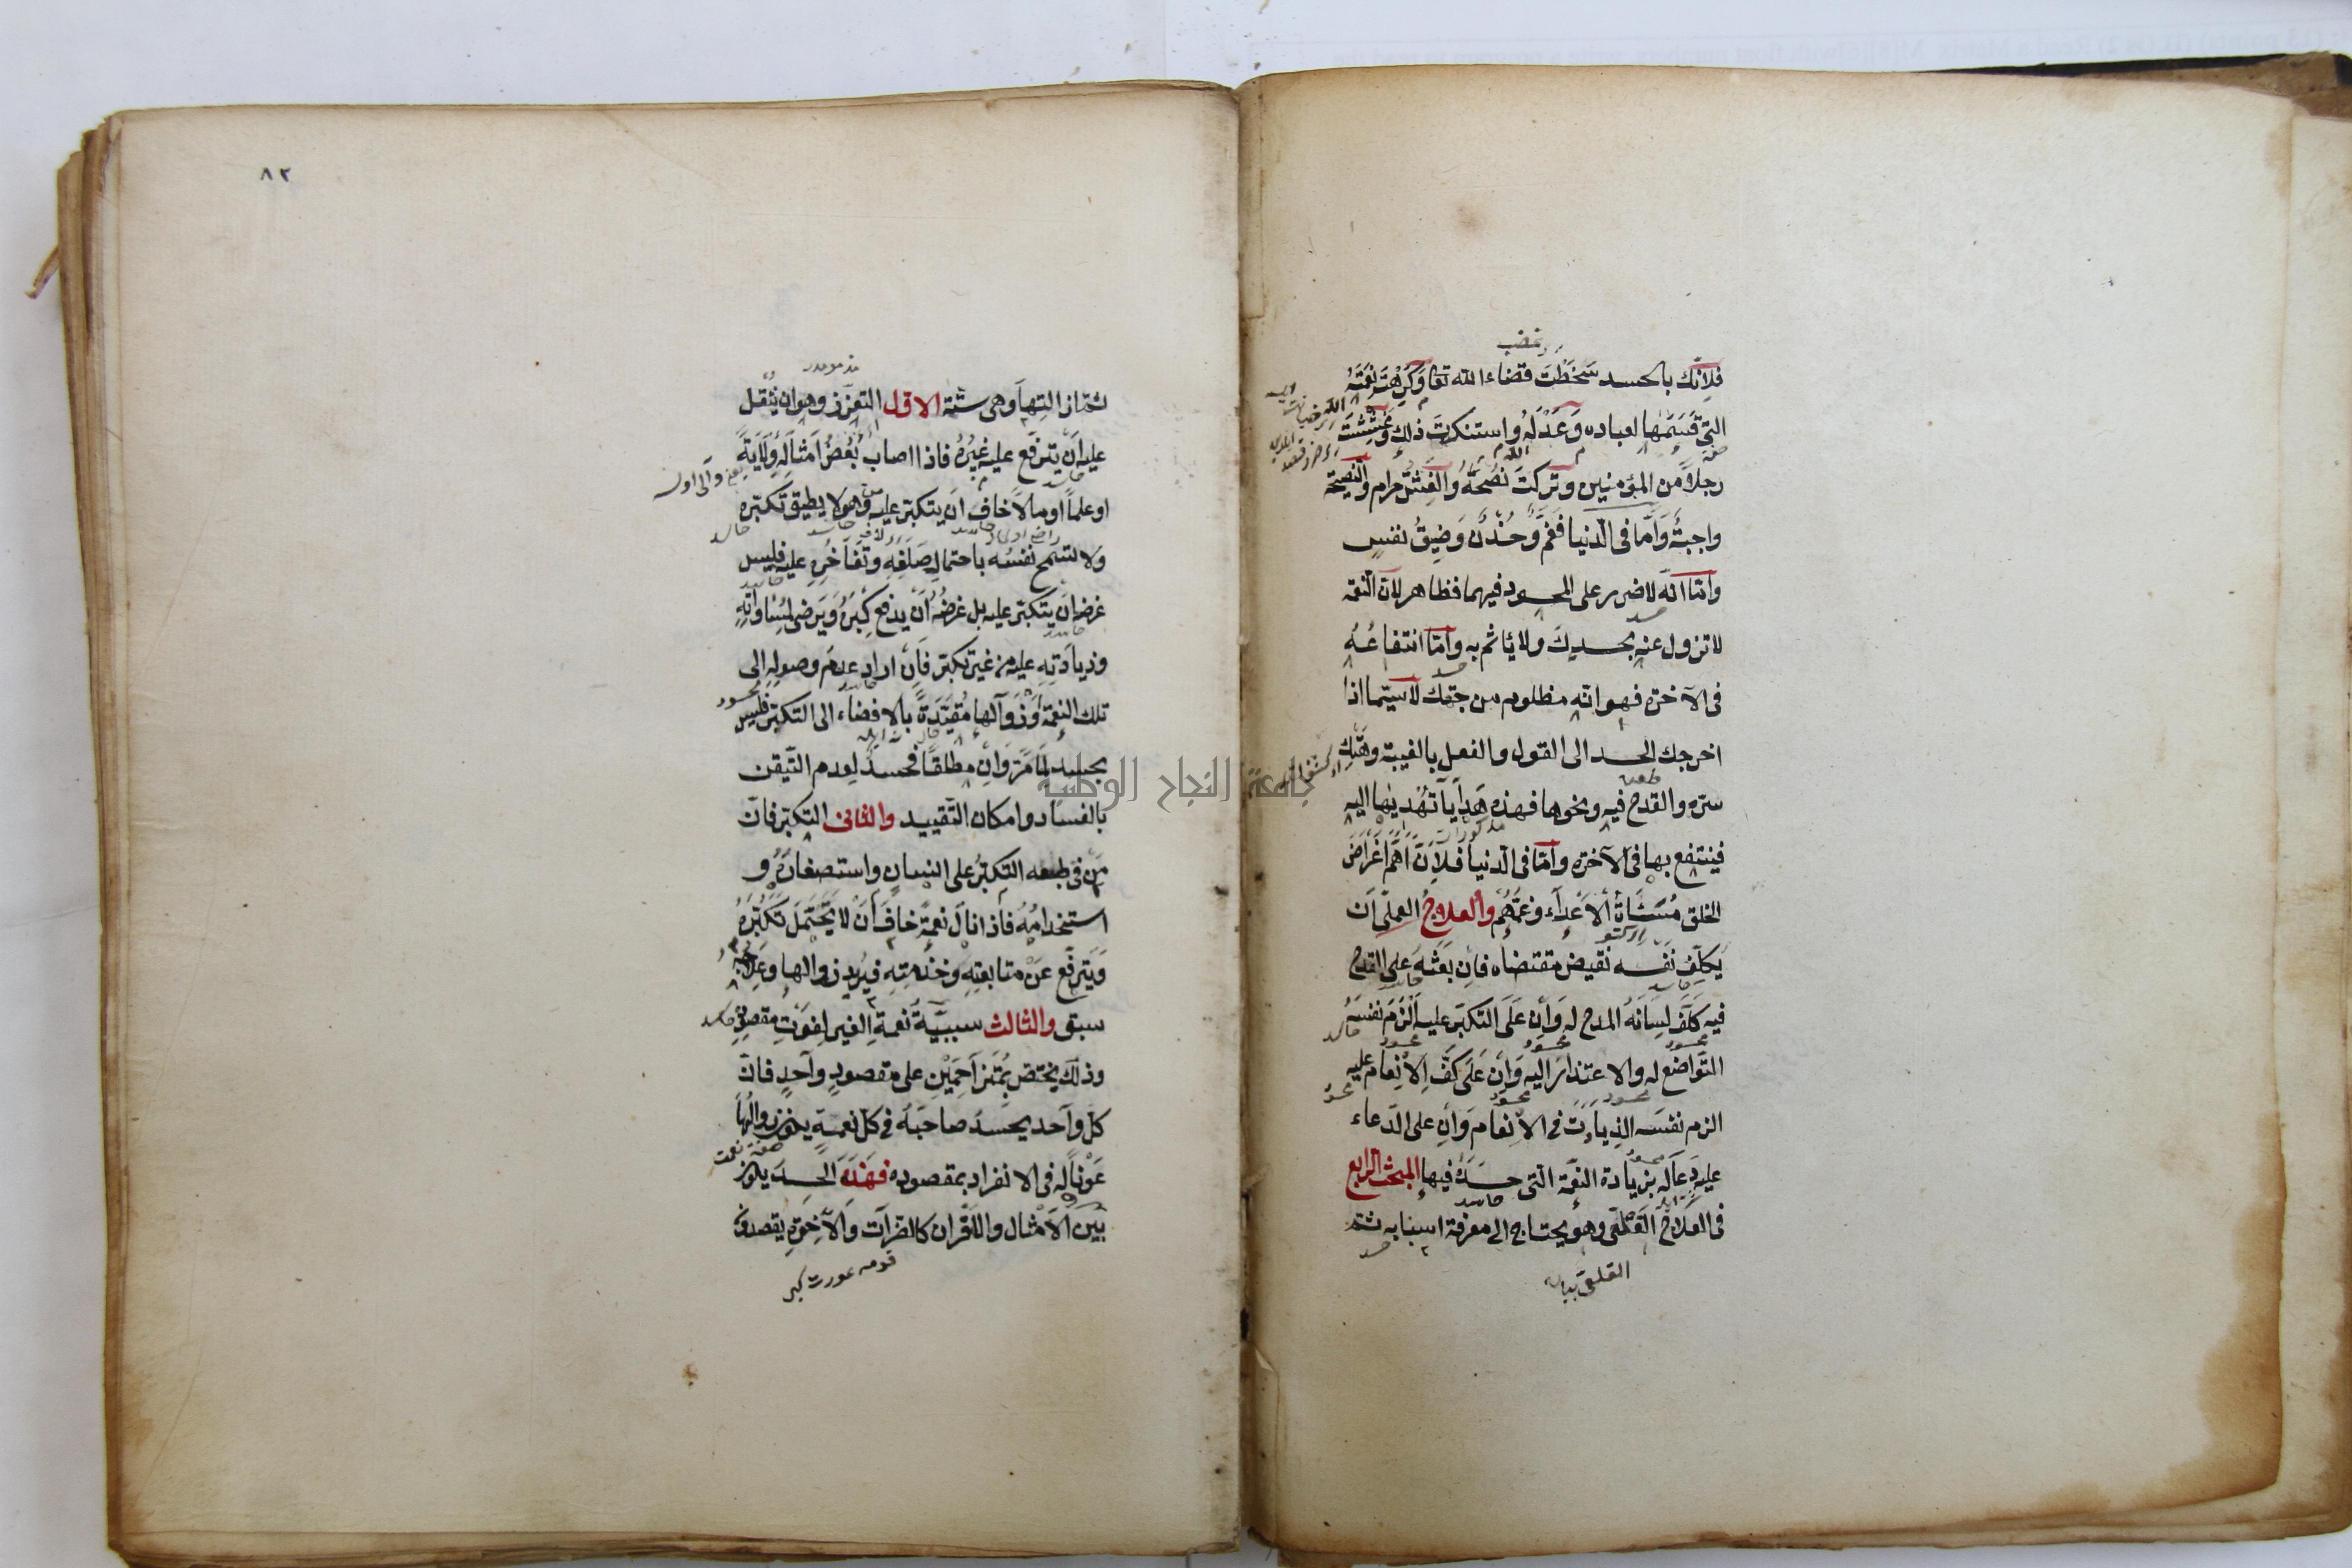 غضب
فلانك بالحسد سخطت قضاء الله تعا وكرهت نعمته
التي قسمها لعباده وعدله واستنكرت ذلك وغششت
رجلاً من المؤمنين وتركت نصحه والغش حرام والنصيحة
واجبة واما في الدنيا فغم وحزن وضيق نفس
وامّا انّه لا ضرر على المحسود فيهما فظاهر لان النعمة
لا تزول عنه بحسدك ولا يأثم به وامّا انتفاعه
في الآخرة فهو انّه مظلوم من جهتك لا سيّما اذا
اخرجك الحسد الى القول والفعل بالغيبة وهتك
ستره والقدح فيه ونحوها فهذه هدايا تهديها اليه
فينتفع بها في الآخرة وامّا في الدنيا فلانّ اهم اغراض
الخلق مسائة الاعداء وغمّهم والعلاج العملي ان
يكلّف نفسه نقيض مقتضاه فان بعثه على القدح
فيه كلّف لسانه المدح له وان على التكبّر عليه الزم نفسه
التواضع له والاعتذار اليه وان على كفّ الانعام عليه
الزم نفسه الزيادة في الانعام وان على الدعاء
عليه دعا له بزيادة النعمة التي حسده فيها المبحث الرابع
في العلاج القلعي وهو يحتاج الى معرفة اسبابه ثمّ
٨٢
ثمّ ازالتها وهي ستة الاوّل التعزّز وهو ان يثقل
عليه ان يترفّع عليه غيره فاذا اصاب بعض امثاله ولاية
او علماً او مالاً خاف ان يتكبّر عليه وهو لا يطيق تكبّره
ولا تسمح نفسه باحتمال صلفه وتفاخره عليه فليس
غرضه ان يتكبّر عليه بل غرضه ان يدفع كبره ويرضى لمساواته
وزيادته عليه من غير تكبّر فان اراد عدم وصوله الى
تلك النعمة او زوالها مقيّدة بالافضاء الى التكبّر فليس
بحسد لما مرّ وان مطلقاً فحسد لعدم التيقن
جامعة النجاح الوطنية
بالفساد وامكان التقييد والثاني التكبّر فانّ
من في طبعه التكبّر على انسان واستصغاره و
استخدامه فاذا نال نعمة خاف ان لا يحتمل تكبّره
ويترفّع عن متابعته وخدمته فيريد زوالها وعلاجه
سبق والثالث سببيّة نعمة الغير لفوت مقصوده
وذلك يختص بمتزاحمين على مقصود واحد فانّ
كلّ واحد يحسد صاحبه في كل نعمة يكون زوالها
عوناً له في الانفراد بمقصوده فهذا الحسد يكون
بين الامثال والاقران كالضرات والاخوة يقصدون